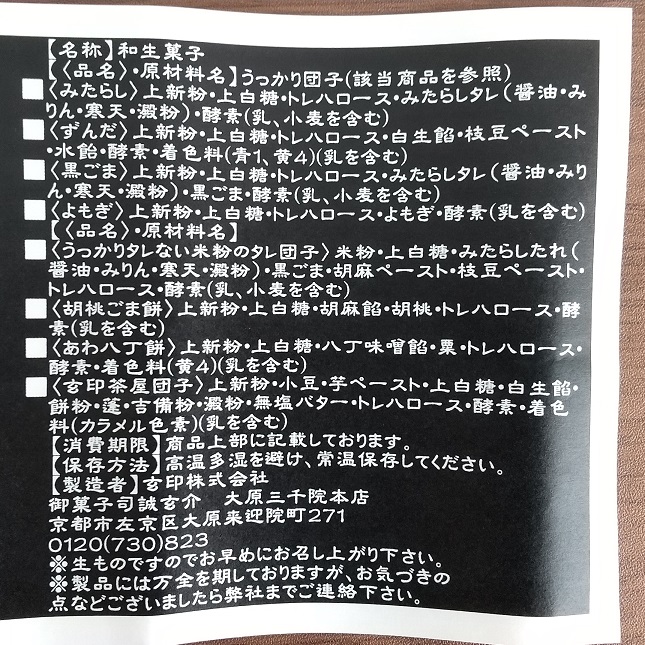 【名称】和生菓子
【〈品名〉・原材料名】うっかり団子(該当商品を参照)
〈みたらし〉上新粉・上白糖・トレハロース・みたらしタレ(醤油・み
りん・寒天・澱粉)・酵素(乳、小麦を含む)
〈ずんだ〉上新粉・上白糖・トレハロース・白生餡・枝豆ペースト
・水飴・酵素・着色料(青1、黄4)(乳を含む)
〈黒ごま〉上新粉・上白糖・トレハロース・みたらしタレ(醤油・みり
ん・寒天・澱粉)・黒ごま・酵素(乳、小麦を含む)
〈よもぎ〉上新粉・上白糖・トレハロース・よもぎ・酵素(乳を含む)
【〈品名〉・原材料名】
〈うっかりタレない米粉のタレ団子〉米粉・上白糖・みたらしたれ(
醤油・みりん・寒天・澱粉)・黒ごま・胡麻ペースト・枝豆ペースト・
トレハロース・酵素(乳、小麦を含む)
〈胡桃ごま餅〉上新粉・上白糖・胡麻餡・胡桃・トレハロース・酵
素(乳を含む)
〈あわ八丁餅〉上新粉・上白糖・八丁味噌餡・粟・トレハロース・
酵素・着色料(黄4)(乳を含む)
〈玄印茶屋団子〉上新粉・小豆・芋ペースト・上白糖・白生餡・
餅粉・蓬・吉備粉・澱粉・無塩バター・トレハロース・酵素・着色
料(カラメル色素)(乳を含む)
【消費期限】商品上部に記載しております。
【保存方法】高温多湿を避け、常温保存してください。
【製造者】玄印株式会社
御菓子司誠玄介 大原三千院本店
京都市左京区大原来迎院町271
0120(730)823
※生ものですのでお早めにお召し上がり下さい。
※製品には万全を期しておりますが、お気づきの
点などございましたら弊社までご連絡下さい。